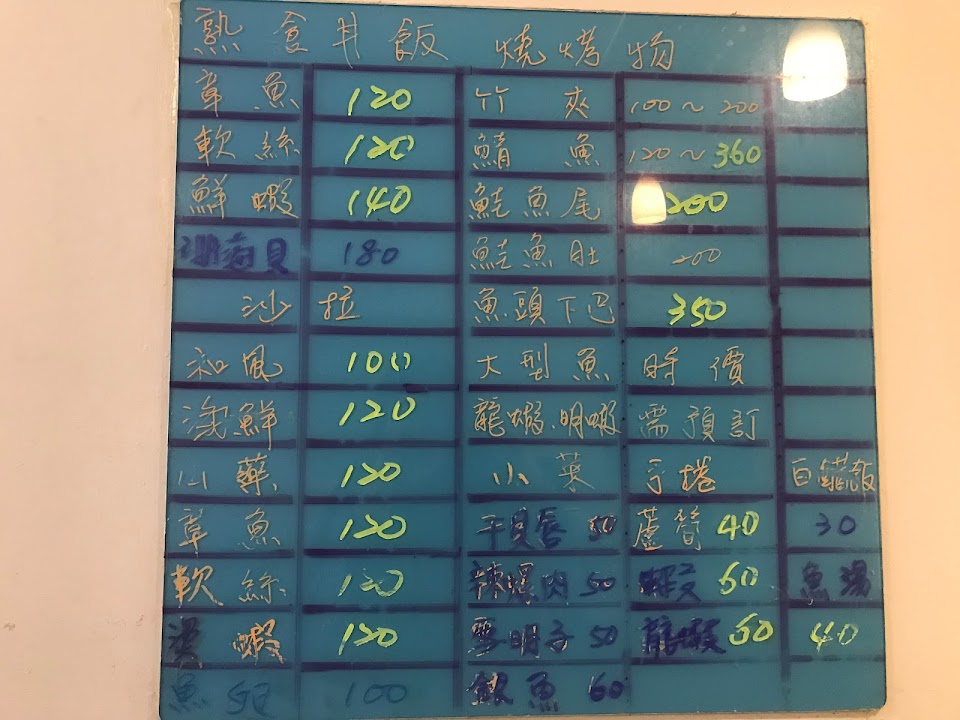 熟食丼飯 燒烤物
章魚 120 竹夾 100~200
軟絲 120 鯖魚 120~360
鮮蝦 140 鮭魚尾 200
貝 180 鮭魚肚 200
沙拉 魚頭下巴 350
和風 100 大型魚 時價
海鮮 120 龍蝦.明蝦 需預訂
山藥 120 小菜 手捲 白醋飯
章魚 120 干貝唇 50 蘆筍 40 30
軟絲 120 辣螺肉 50 蝦 60 魚湯
蝦 120 50 龍蝦 50 40
魚卵 100 魚 60